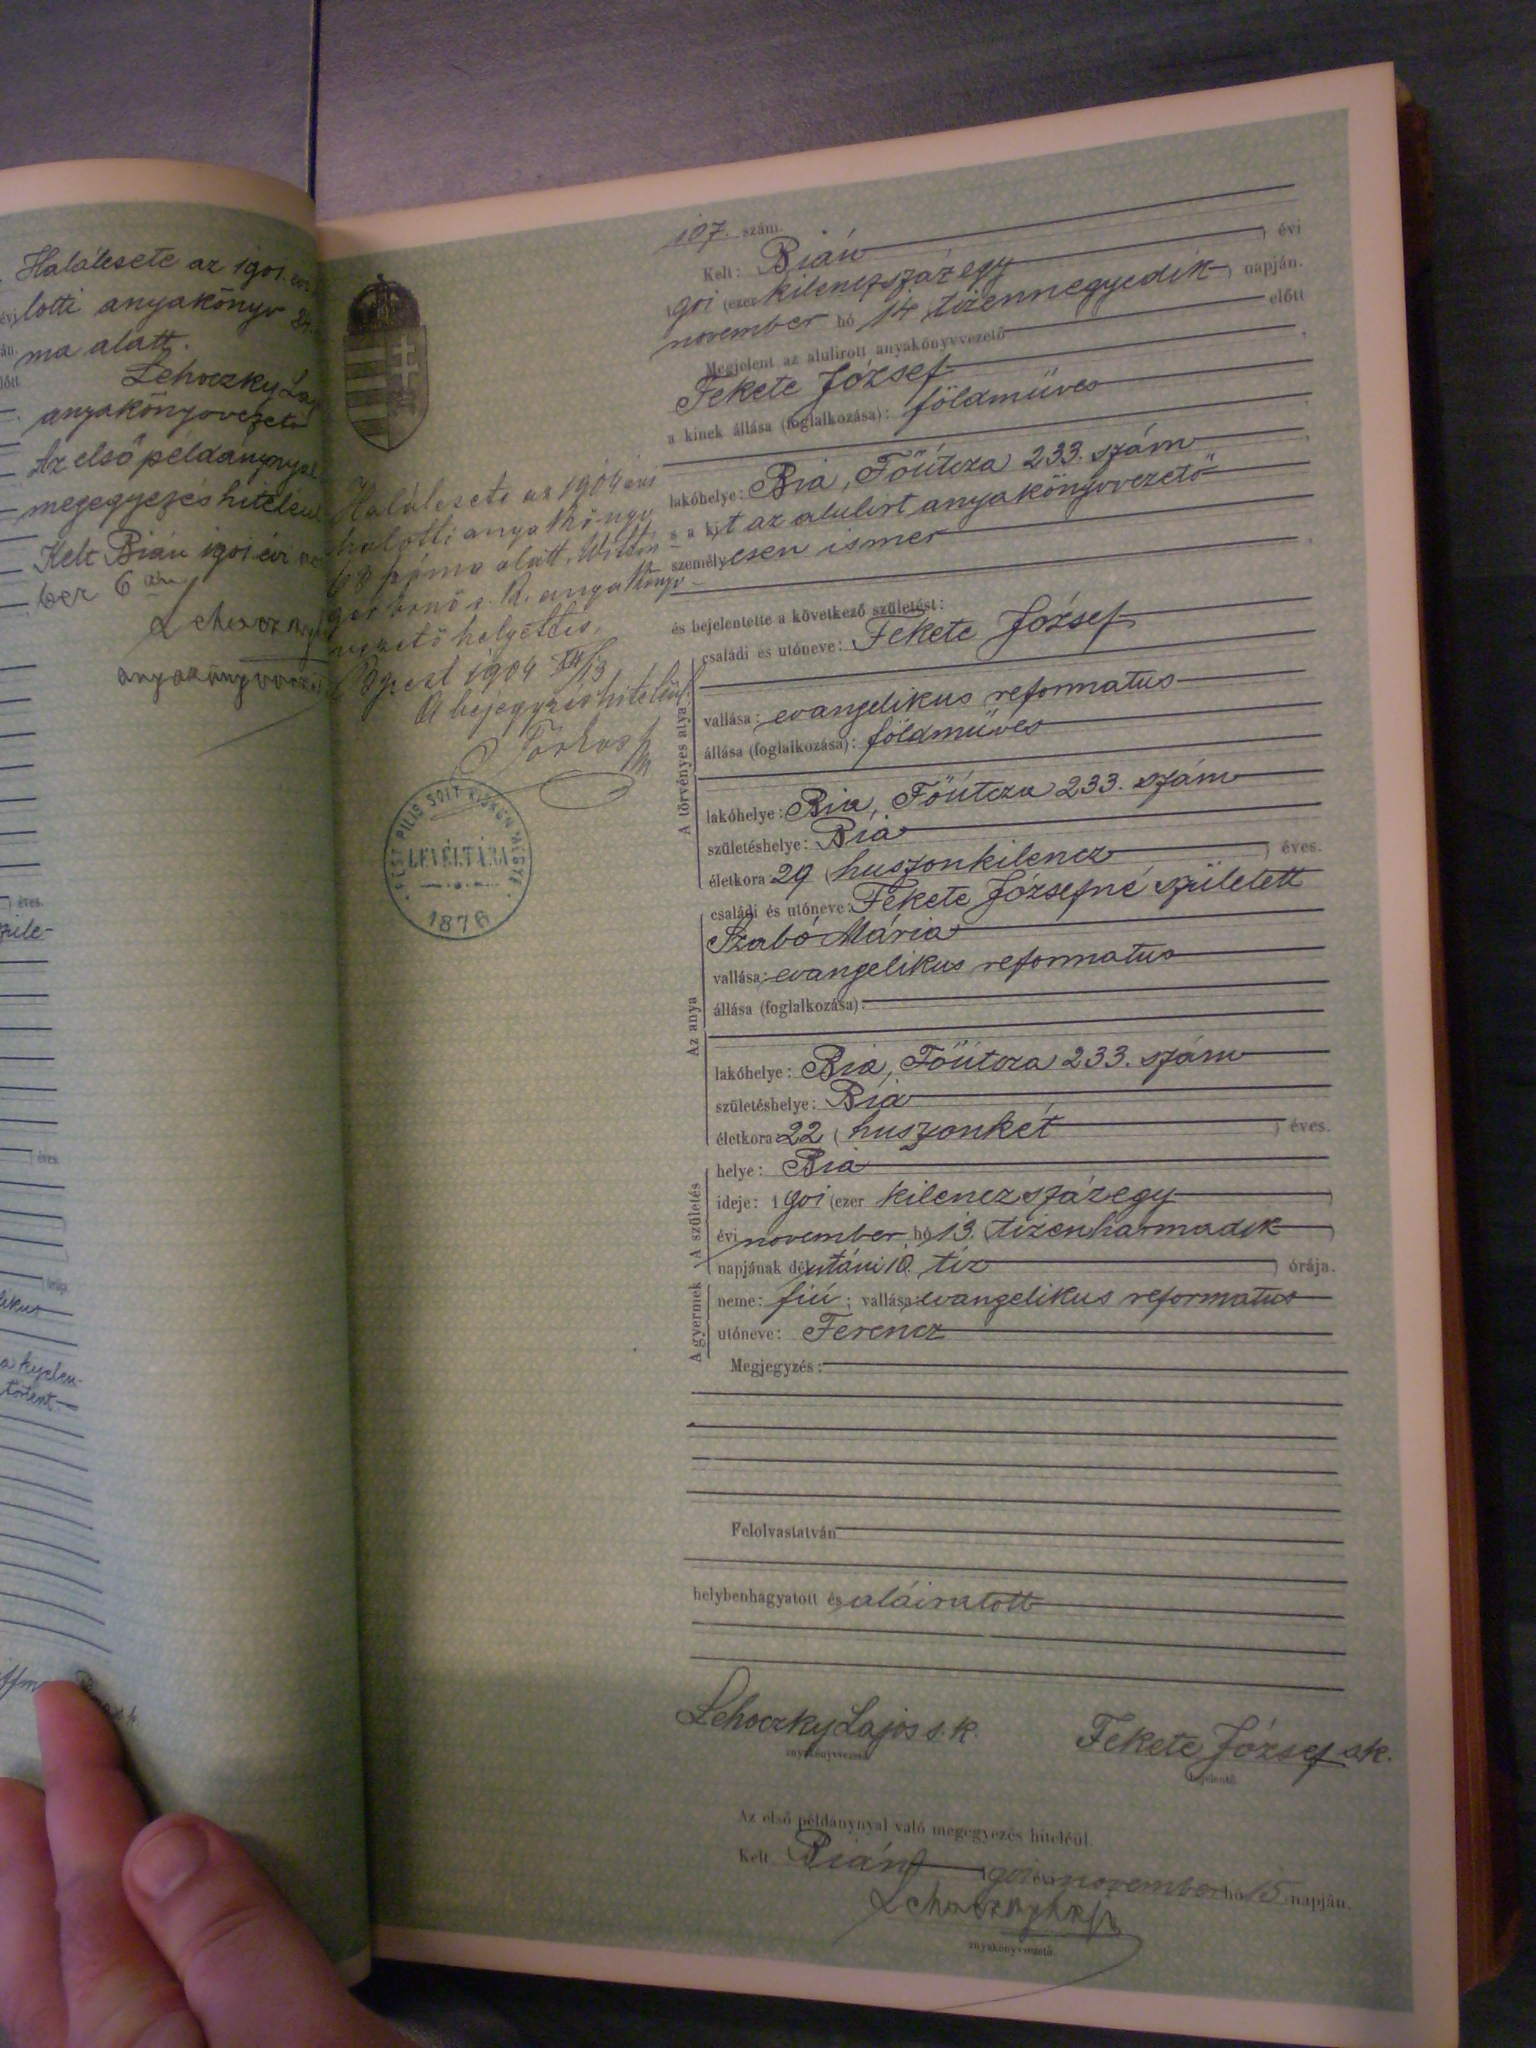 Halálesete az 1901. évi
lotti anyakönyv
ma alatt.
Lehoczky La
anyakönyvvezető
Az első példánynyal
megegyezés hiteléül
Kelt Bián 1901 évi
ber 6 án
anyakönyvvezető
éves.
szüle-
éves.
órája.
történt.
Halálesete az 1904 évi
halotti anyakönyv
alatt.
s. k. anyakönyv-
vezető helyettes.
Bpest 1904 XII/13
A bejegyzés hiteléül:
PEST PILIS SOLT KISKUN MEGYE
LEVÉLTÁRA
1876
107. szám.
Kelt: Bián évi
1901 (ezer kilenczszáz egy
november hó 14 tizennegyedik napján.
Megjelent az alulirott anyakönyvvezető előtt
Fekete József
a kinek állása (foglalkozása): földműves
lakóhelye: Bia, Főútcza 233. szám
s a kit az alulirt anyakönyvvezető
személyesen ismer
és bejelentette a következő születést:
A törvényes atya
családi és utóneve: Fekete József
vallása: evangelikus reformatus
állása (foglalkozása): földműves
lakóhelye: Bia, Főútcza 233. szám
születéshelye: Bia
életkora 29 (huszonkilencz) éves.
Az anya
családi és utóneve: Fekete Józsefné született
Szabó Mária
vallása: evangelikus reformatus
állása (foglalkozása):
lakóhelye: Bia, Főútcza 233. szám
születéshelye: Bia
életkora 22 (huszonkét) éves.
A születés
helye: Bia
ideje: 1901 (ezer kilenczszázegy)
évi november hó 13. tizenharmadik
napjának délutáni 10. tiz) órája.
A gyermek
neme: fiú; vallása: evangelikus reformatus
utóneve: Ferencz
Megjegyzés:
Felolvastatván
helybenhagyatott és aláiratott
Lehoczky Lajos s. k.
anyakönyvvezető
Fekete József sk.
bejelentő
Az első példánynyal való megegyezés hiteléül.
Kelt Bián 1901 évi november hó 15 napján.
Lehoczky Lajos
anyakönyvvezető.